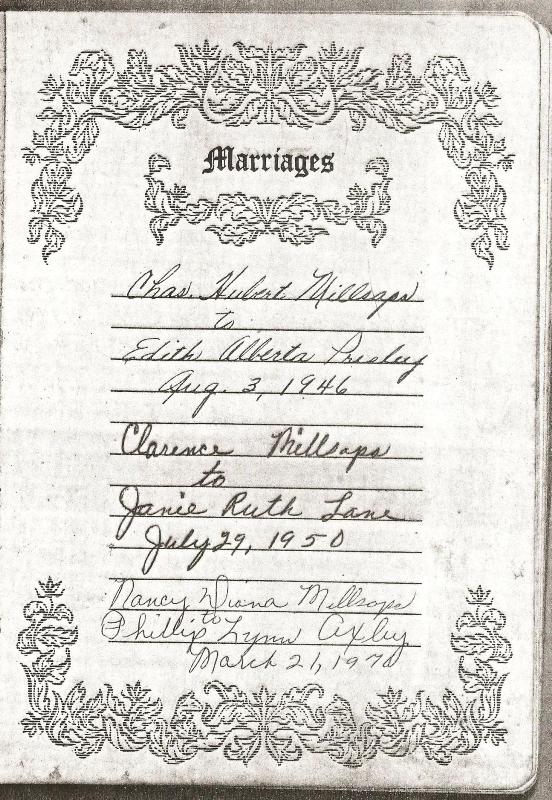 Marriages
Chas. Hubert Millsaps
to
Edith Alberta Presley
Aug. 3, 1946
Clarence Millsaps
to
Janie Ruth Lane
July 29, 1950
Nancy Diana Millsaps
to
Phillip Lynn Axley
March 21, 1970